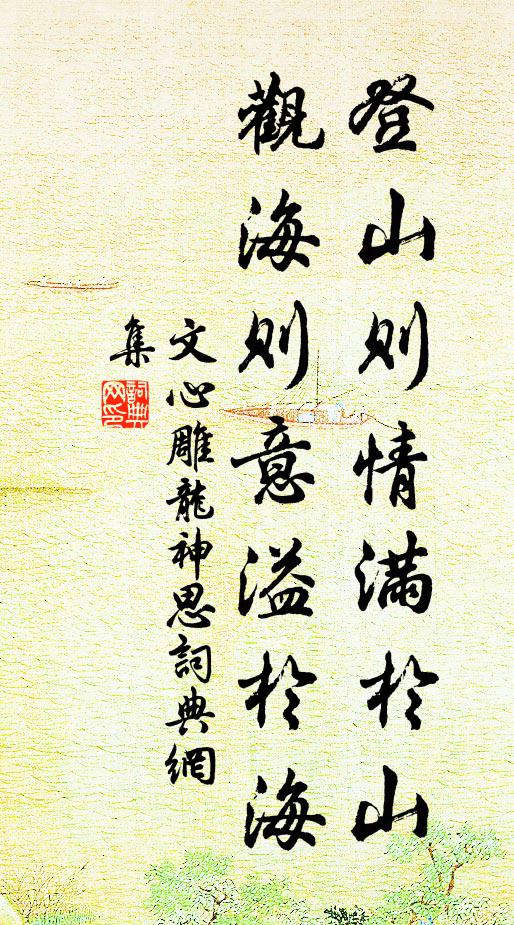 登山則情滿於山
觀海則意溢於海
文心雕龍神思詞典網
集
詞典
网印